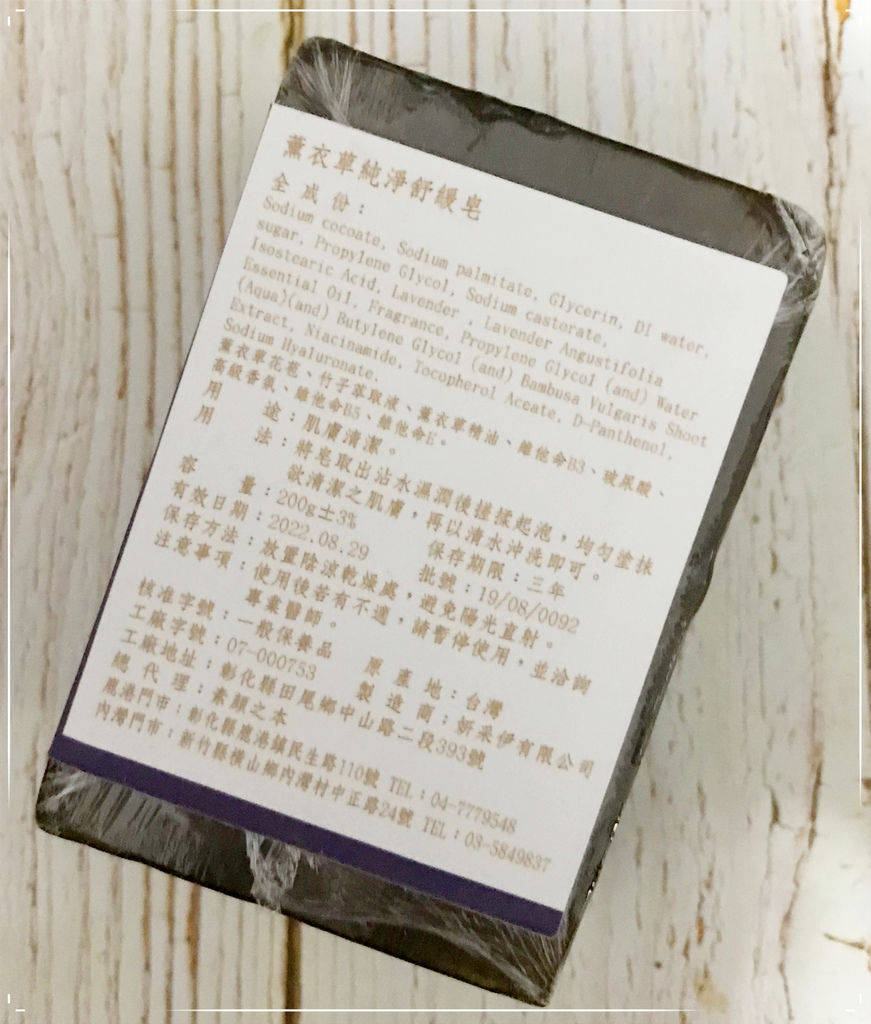 薰衣草純淨舒緩皂
全成份：
Sodium cocoate, Sodium palmitate, Glycerin, DI water,
sugar, Propylene Glycol, Sodium castorate,
Isostearic Acid, Lavender , Lavender Angustifolia
Essential Oil, Fragrance, Propylene Glycol (and) Water
(Aqua)(and) Butylene Glycol (and) Bambusa Vulgaris Shoot
Extract, Niacinamide, Tocopherol Aceate, D-Panthenol,
Sodium Hyaluronate.
薰衣草花苞、竹子萃取液、薰衣草精油、維他命B3、玻尿酸、
高級香氛、維他命B5、維他命E。
用途：肌膚清潔。
用法：將皂取出沾水濕潤後搓揉起泡，均勻塗抹
欲清潔之肌膚，再以清水沖洗即可。
容量：200g±3% 保存期限：三年
有效日期：2022.08.29 批號：19/08/0092
保存方法：放置陰涼乾燥處，避免陽光直射。
注意事項：使用後若有不適，請暫停使用，並洽詢
專業醫師。
核准字號：一般保養品 原產地：台灣
工廠字號：07-000753 製造商：妍采伊有限公司
工廠地址：彰化縣田尾鄉中山路二段393號
總代理：素顏之本
鹿港門市：彰化縣鹿港鎮民生路110號 TEL：04-7779548
內灣門市：新竹縣橫山鄉內灣村中正路24號 TEL：03-5849837